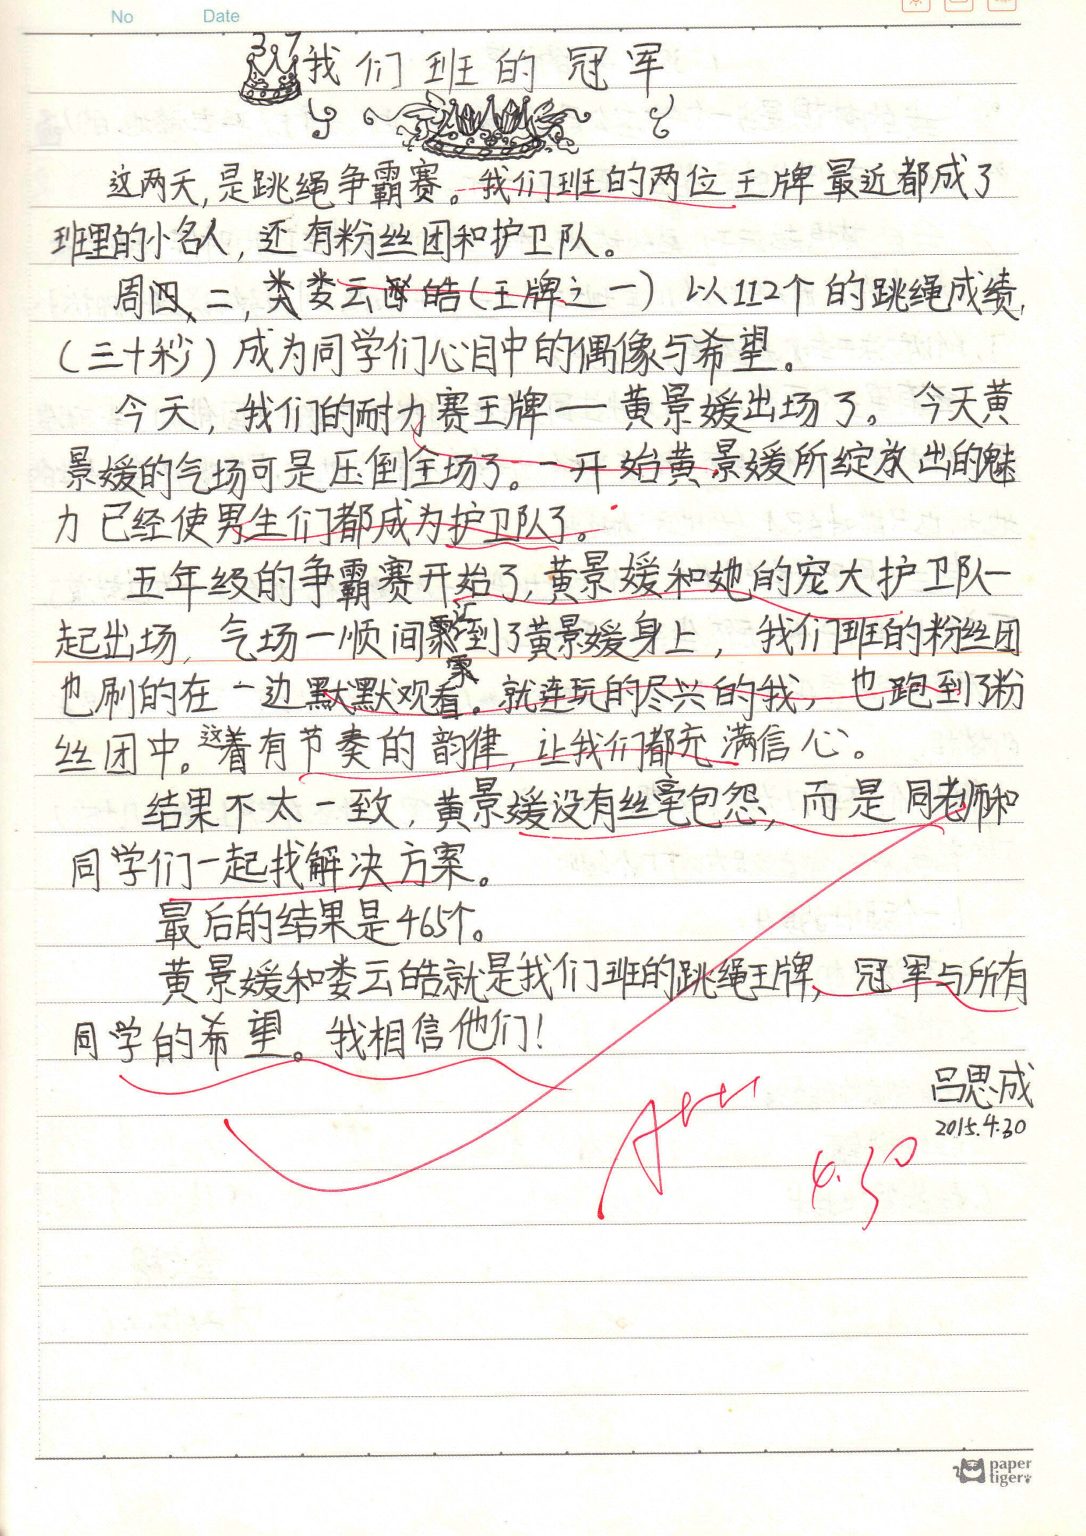 No Date
37 我们班的冠军
这两天,是跳绳争霸赛。我们班的两位王牌最近都成了
班里的小名人,还有粉丝团和护卫队。
周二,娄云皓(王牌之一)以112个的跳绳成绩,
(三十秒)成为同学们心目中的偶像与希望。
今天,我们的耐力赛王牌——黄景媛出场了。今天黄
景媛的气场可是压倒全场了。一开始黄景媛所绽放出的魅
力已经使男生们都成为护卫队了。
五年级的争霸赛开始了,黄景媛和她的宠大护卫队一
起出场,气场一顺间汇聚到了黄景媛身上,我们班的粉丝团
也刷的在一边默默观看。就连玩的尽兴的我,也跑到了粉
丝团中。这着有节奏的韵律,让我们都充满信心。
结果不太一致,黄景媛没有丝毫包怨,而是同老师和
同学们一起找解决方案。
最后的结果是465个。
黄景媛和娄云皓就是我们班的跳绳王牌,冠军与所有
同学的希望。我相信他们!
吕思成
2015.4.30
4.30
paper
tiger